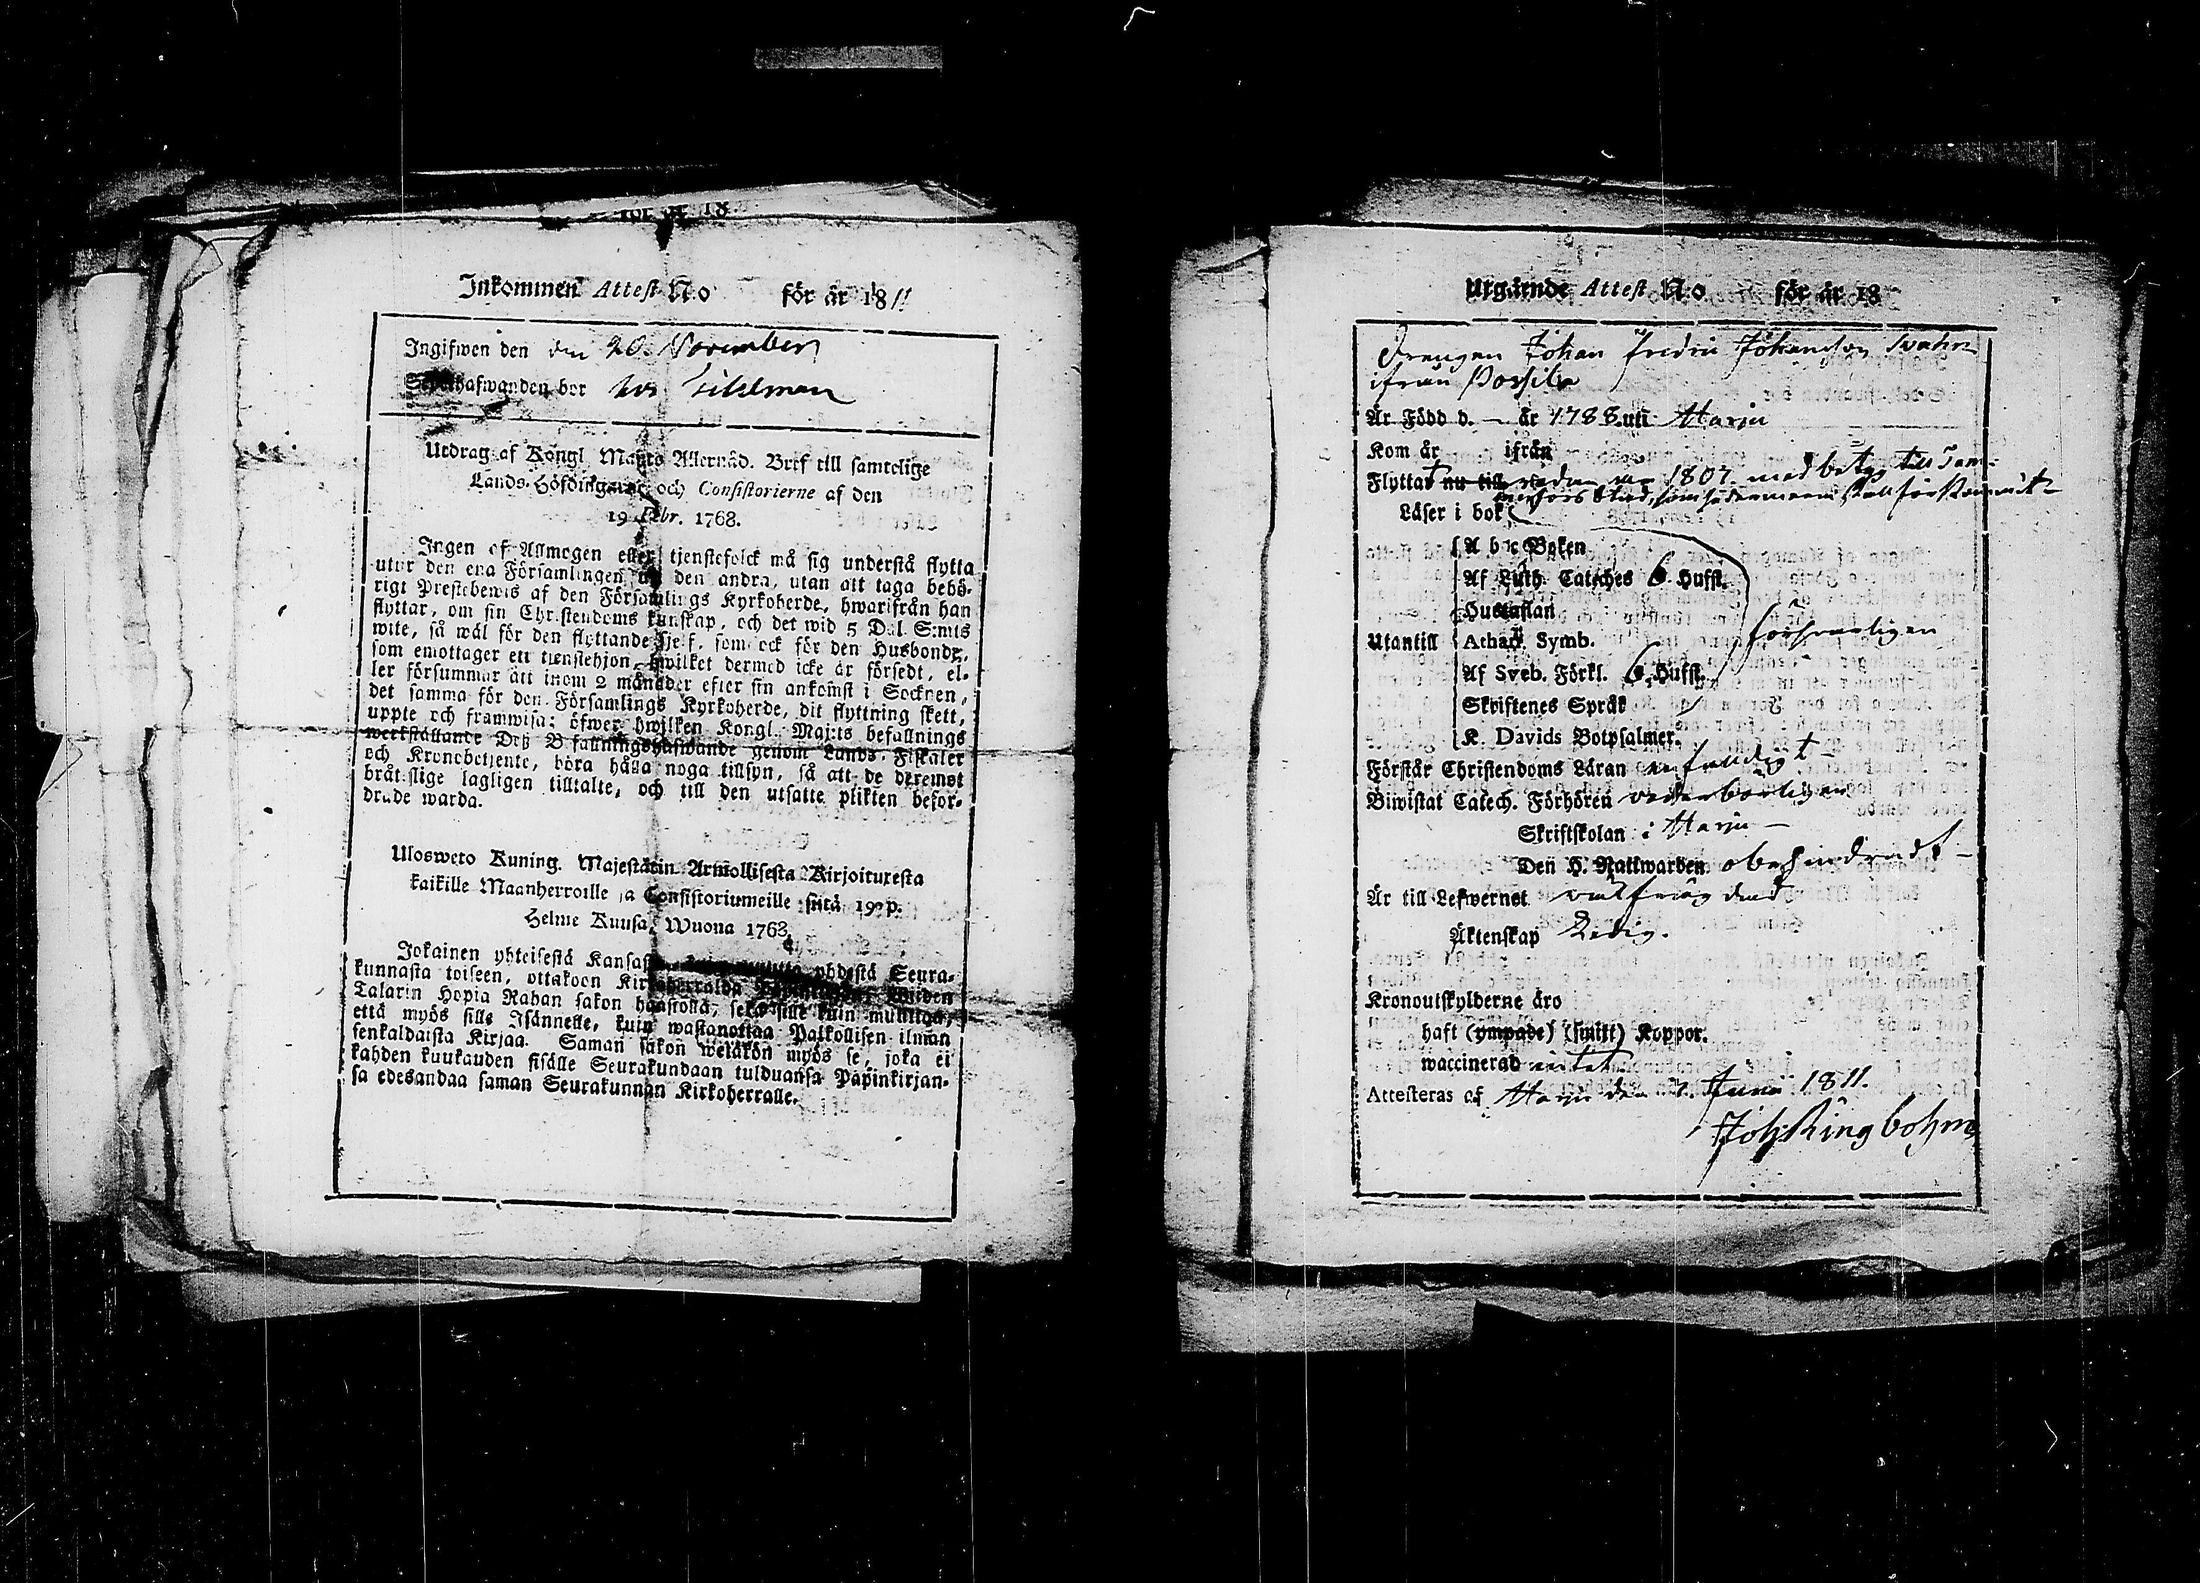 för år 18
Inkommen Attest No för år 1811
Ingifwen den den 20. November
bor hos Eitelman
Utdrag af Kongl. Maj:ts Allernåd. Bref till samtelige
Lands-Höfdingarne och Consistorierne af den
19 Febr. 1768.
Ingen af Allmogen eller tjenstefolck må sig understå flytta
utur den ena Församlingen till den andra, utan att taga behö-
rigt Prestebewis af den Församlings Kyrkoherde, hwarifrån han
flyttar, om sin Christendoms kunskap, och det wid 5 Dal. S:mts
wite, så wäl för den flyttande sjelf, som ock för den Husbonde,
som emottager ett tjenstehjon, hwilket dermed icke är försedt, el-
ler försummar att inom 2 månader efter sin ankomst i Socknen,
det samma för den Församlings Kyrkoherde, dit flyttning skett,
uppte och framwisa: öfwer hwilken Kongl. Maj:ts befallnings
werkställande Deß Befallningshafwande genom Lands-Fiskaler
och Kronobetjente, böra hålla noga tillsyn, så att de deremot
bråtslige lagligen tilltalte, och till den utsatte plikten befor-
drade warda.
Ulosweto Kuning. Majestätin Armollisesta Kirjoituxesta
kaikille Maanherroille ja Consistoriumeille siitä 19 p.
Helme Kuusa, Wuona 1763.
Jokainen yhteisestä Kansasta, yhdestä Seura-
kunnasta toiseen, ottakoon Kirkoherralda Wiiden
Talarin Hopia Rahan sakon haastolla, sekä sille kuin muuttaa,
että myös sille Isännelle, kuin wastanottaa Palkollisen ilman
senkaldaista Kirjaa. Saman sakon wetäkön myös se, joka ei
kahden kuukauden sisälle Seurakundaan tulduansa Papinkirjan-
sa edesandaa saman Seurakunnan Kirkoherralle.
Utgående Attest No för år 18
Drengen Johan Fredric Johansson Svahn
ifrån Porsila
Är Född d. — år 1788. uti Harju
Kom år ifrån
Flyttat nu till redan 1807 med betyg till Tam-
merfors Stad,
Läser i bok
A b c Boken
Af Luth. Catéches 6 Hufst.
Hustaflan
Utantill Athan. Symb. försvarligen
Af Sveb. Förkl. 6 Hufst.
Skriftenes Språk
K. Davids Botpsalmer.
Förstår Christendoms Läran enfaldigt
Biwistat Catech. Förhören vederbörligen
Skriftskolan i Harju —
Den H. Nattwarden obehindradt —
Är till Lefwernet välfrägdad
Äktenskap Ledig.
Kronoutskylderne äro
haft (ympade) (smitt) Koppor.
waccinerad
Attesteras af Harju den 7. Junii 1811.
Joh: Ringbohm